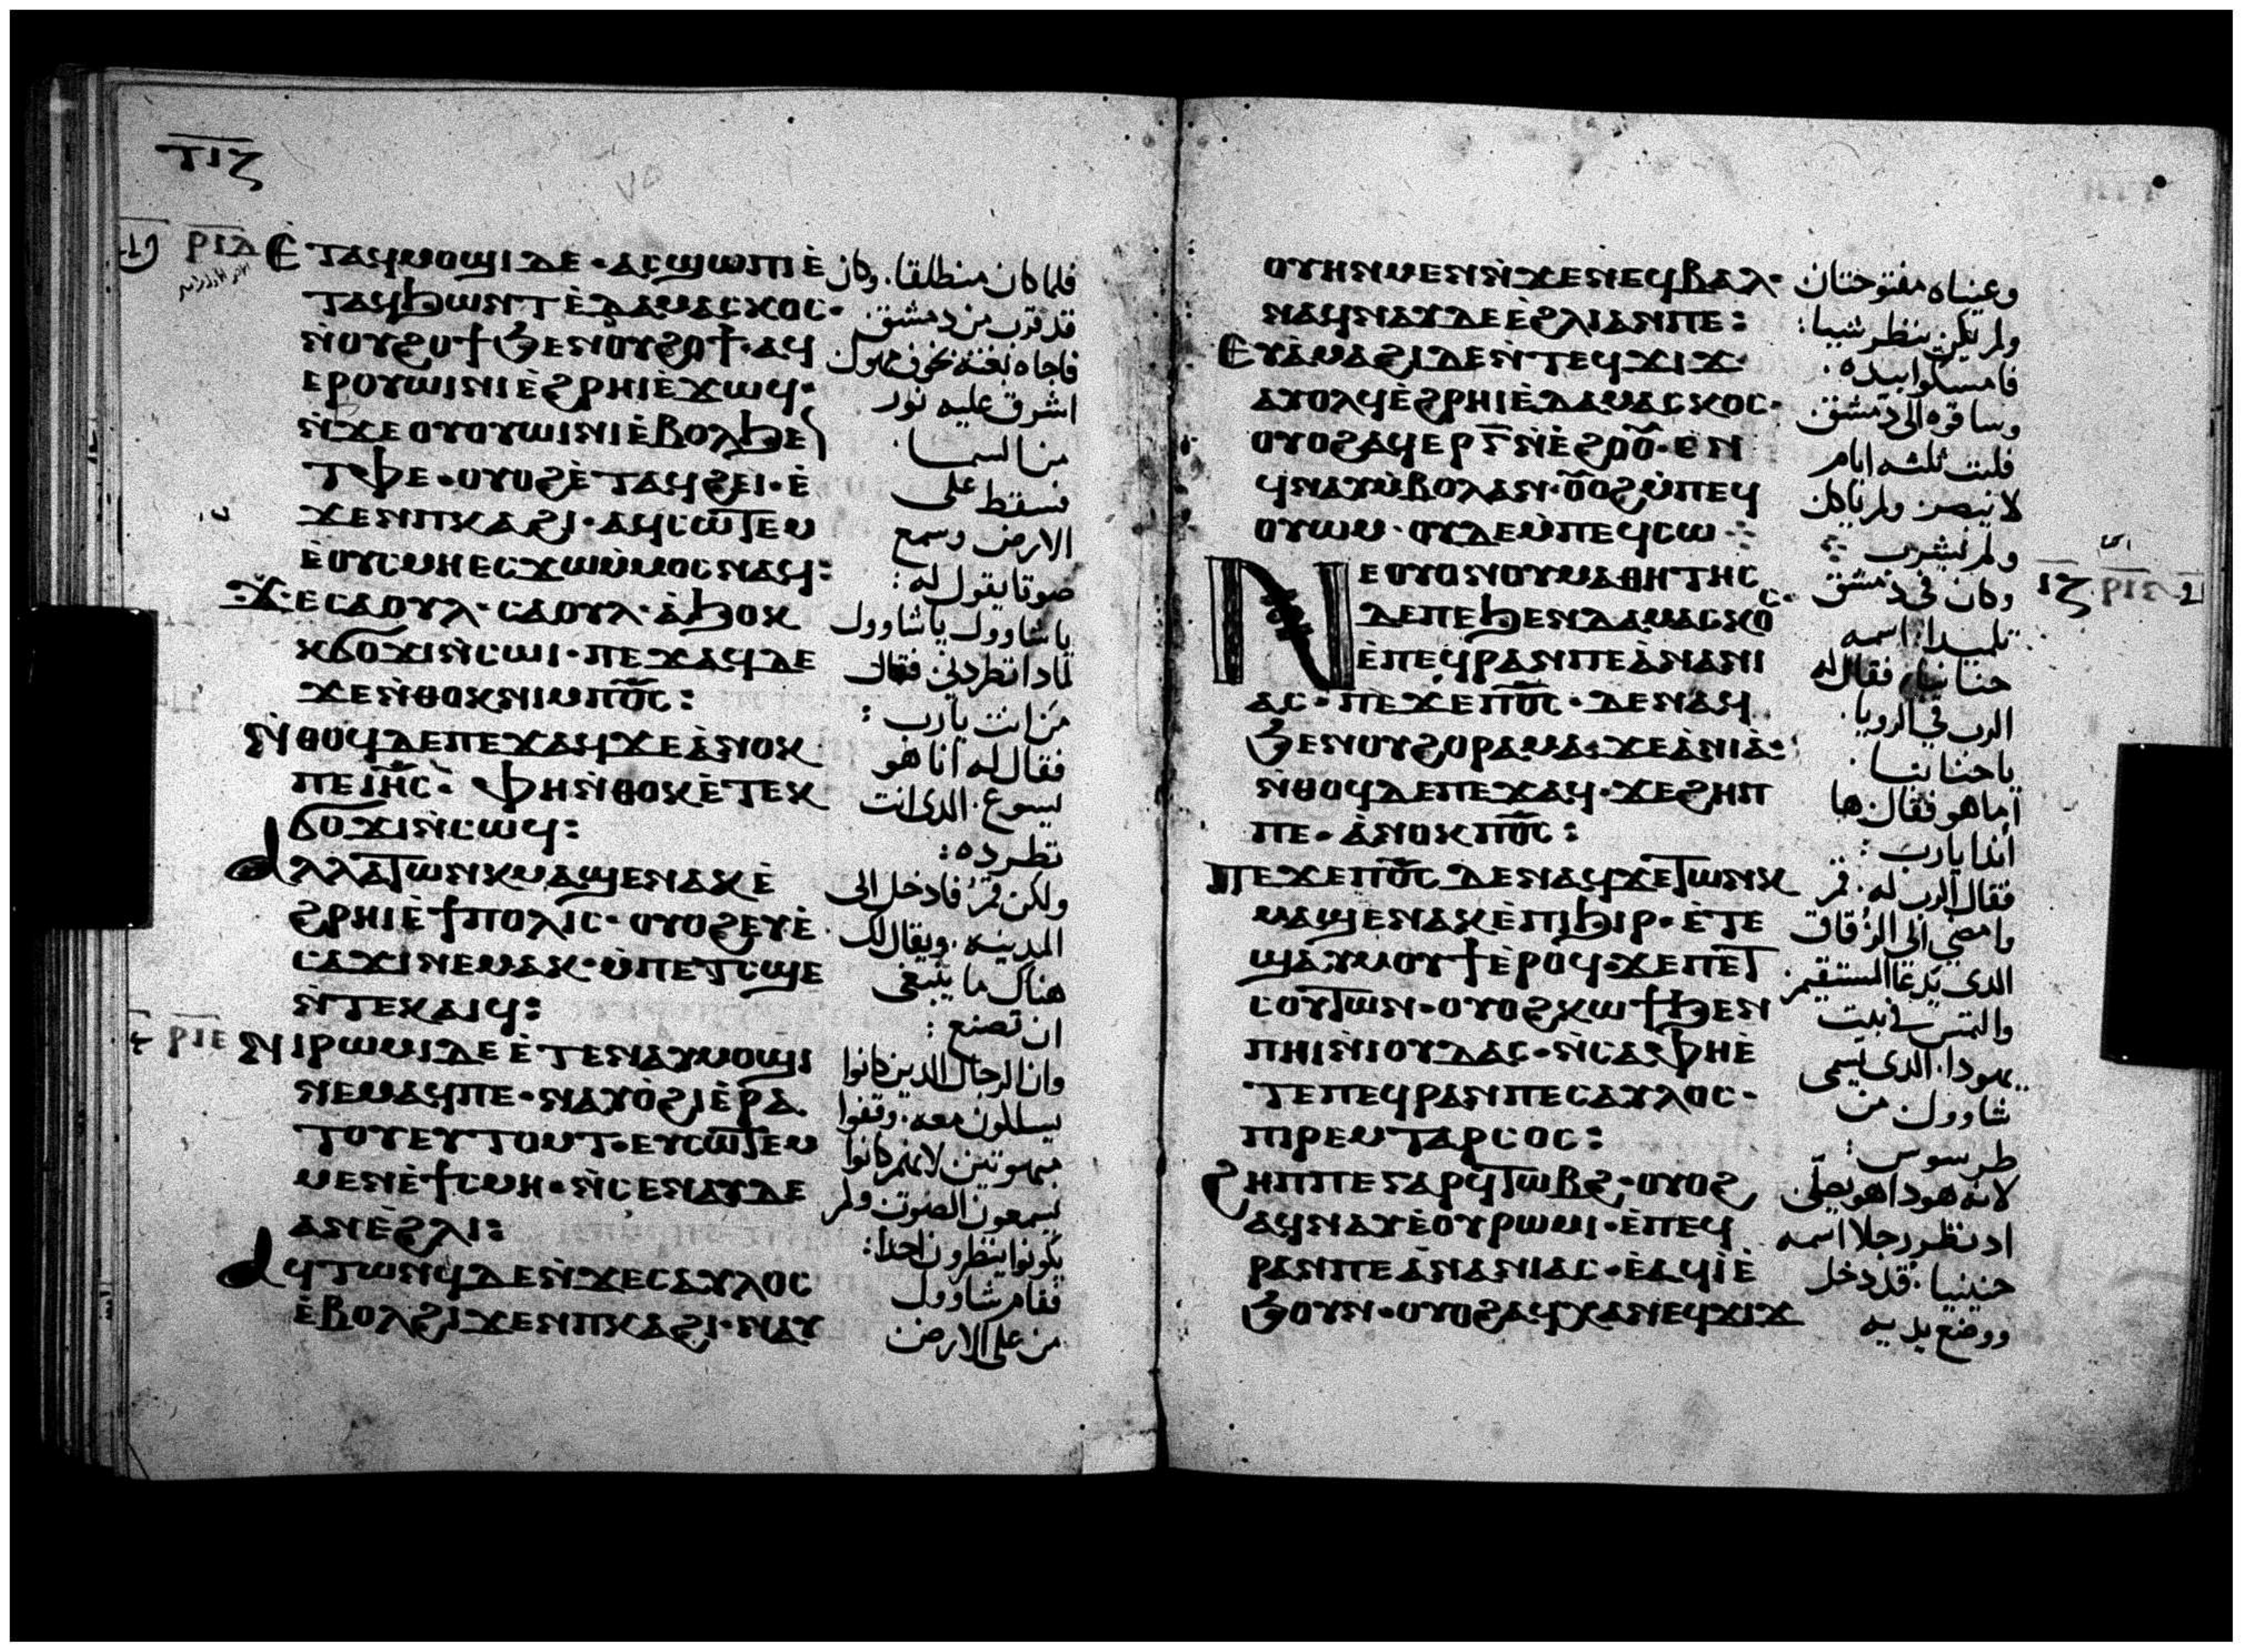 ⲧⲓⲍ
ⲣⲓⲇ
Ⲉ̀ⲧⲁϥⲙⲟϣⲓⲇⲉ · ⲁⲥϣⲱⲡⲓⲉ̀
ⲧⲁϥϧⲱⲛⲧⲉ̀ⲇⲁⲙⲁⲥⲕⲟⲥ ·
ⲛ̀ⲟⲩϩⲟϯϧⲉⲛⲟⲩϩⲟϯ · ⲁϥ
ⲉⲣⲟⲩⲱⲓⲛⲓⲉ̀ϩⲣⲏⲓⲉ̀ϫⲱϥ ·
ⲛ̀ϫⲉⲟⲩⲟⲩⲱⲓⲛⲓⲉ̀ⲃⲟⲗϧⲉⲛ
ⲧⲫⲉ · ⲟⲩⲟϩⲉ̀ⲧⲁϥϩⲉⲓ · ⲉ̀
ϫⲉⲛⲡⲕⲁϩⲓ · ⲁϥⲥⲱⲧⲉⲙ
ⲉ̀ⲟⲩⲥⲙⲏⲉⲥϫⲱⲙ̀ⲙⲟⲥⲛⲁϥ :
ϫⲉⲥⲁⲟⲩⲗ · ⲥⲁⲟⲩⲗ · ⲁ̀ϧⲟⲕ
ⲕϭⲟϫⲓⲛ̀ⲥⲱⲓ · ⲡⲉϫⲁϥⲇⲉ
ϫⲉⲛ̀ⲑⲟⲕⲛⲓⲙⲡⲟ̅ⲥ̅ :
Ⲛ̀ⲑⲟϥⲇⲉⲡⲉϫⲁϥϫⲉⲁ̀ⲛⲟⲕ
ⲡⲉⲓ̅ⲏ̅ⲥ̅ · ⲫⲏⲛ̀ⲑⲟⲕⲉ̀ⲧⲉⲕ
ϭⲟϫⲓⲛ̀ⲥⲱϥ :
Ⲁⲗⲗⲁⲧⲱⲛⲕⲙⲁϣⲉⲛⲁⲕⲉ̀
ϩⲣⲏⲓⲉ̀ϯⲡⲟⲗⲓⲥ · ⲟⲩⲟϩⲉⲩⲉ̀
ⲥⲁϫⲓⲛⲉⲙⲁⲕ · ⲙ̀ⲡⲉⲧⲥϣⲉ
ⲛ̀ⲧⲉⲕⲁⲓϥ :
ⲣⲓⲉ
Ⲛⲓⲣⲱⲙⲓⲇⲉⲉ̀ⲧⲉⲛⲁⲩⲙⲟϣⲓ
ⲛⲉⲙⲁϥⲡⲉ · ⲛⲁⲩⲟ̀ϩⲓⲉ̀ⲣⲁ
ⲧⲟⲩⲉⲩⲧⲟⲙⲧ · ⲉⲩⲥⲱⲧⲉⲙ
ⲙⲉⲛⲉ̀ϯⲥⲙⲏ · ⲛ̀ⲥⲉⲛⲁⲩⲇⲉ
ⲁⲛⲉ̀ϩⲗⲓ :
Ⲁϥⲧⲱⲛϥⲇⲉⲛ̀ϫⲉⲥⲁⲩⲗⲟⲥ
ⲉ̀ⲃⲟⲗϩⲓϫⲉⲛⲡⲕⲁϩⲓ · ⲛⲁⲩ
فلما كان منطلقا. وكان
قد قرب من دمشق
فاجاه بغته
اشرق عليه نور
من السما.
فسقط على
الارض وسمع
صوتا يقول له :
يا شاوول يا شاوول
لمادا تطردني فقال
من انت يارب :
فقال له انا هو
يسوع. الدى انت
تطرده :
ولكن قم فادخل الى
المدينه. ويقال لك
هناك ما ينبغى
ان تصنع :
وان الرجال الدين كانوا
معه. وقفوا
مبهوتين لانهم كانوا
يسمعون الصوت ولم
يكونوا ينظرون احدا :
فقام شاوول
من على الارض
ⲟⲩⲏⲛⲙⲉⲛⲛ̀ϫⲉⲛⲉϥⲃⲁⲗ ·
ⲛⲁϥⲛⲁⲩⲇⲉⲉ̀ϩⲗⲓⲁⲛⲡⲉ :
Ⲉⲩⲁ̀ⲙⲁϩⲓⲇⲉⲛ̀ⲧⲉϥϫⲓϫ
ⲁⲩⲟⲗϥⲉ̀ϩⲣⲏⲓⲉ̀ⲇⲁⲙⲁⲥⲕⲟⲥ ·
ⲟⲩⲟϩⲁϥⲉⲣⲅ̅ⲛ̀ⲉ̀ϩⲟⲟ̅ · ⲉⲛ
ϥⲛⲁⲩⲙ̀ⲃⲟⲗⲁⲛ · ⲟ̅ⲟϩⲙ̀ⲡⲉϥ
ⲟⲩⲱⲙ · ⲟⲩⲇⲉⲙ̀ⲡⲉϥⲥⲱ ⁘
Ⲛⲉⲟⲩⲟⲛⲟⲩⲙⲁⲑⲏⲧⲏⲥ
ⲇⲉⲡⲉϧⲉⲛⲇⲁⲙⲁⲥⲕⲟⲥ ·
ⲉ̀ⲡⲉϥⲣⲁⲛⲡⲉⲁ̀ⲛⲁⲛⲓ
ⲁⲥ · ⲡⲉϫⲉⲡⲟ̅ⲥ̅ · ⲇⲉⲛⲁϥ
ϧⲉⲛⲟⲩϩⲟⲣⲁⲙⲁ : ϫⲉⲁ̀ⲛⲓⲁ̀ :
ⲛ̀ⲑⲟϥⲇⲉⲡⲉϫⲁϥ · ϫⲉϩⲏⲡ
ⲡⲉ · ⲁ̀ⲛⲟⲕⲡⲟ̅ⲥ̅ :
Ⲡⲉϫⲉⲡⲟ̅ⲥ̅ ⲇⲉⲛⲁϥϫⲉⲧⲱⲛⲕ
ⲙⲁϣⲉⲛⲁⲕⲉ̀ⲡⲓϧⲓⲣ · ⲉ̀ⲧⲉ
ϣⲁⲩⲙⲟⲩϯⲉ̀ⲣⲟϥ · ϫⲉⲡⲉⲧ
ⲥⲟⲩⲧⲱⲛ · ⲟⲩⲟϩⲕⲱϯϧⲉⲛ
ⲡⲏⲓⲛ̀ⲓⲟⲩⲇⲁⲥ · ⲛ̀ⲥⲁⲫⲏⲉ̀
ⲧⲉⲡⲉϥⲣⲁⲛⲡⲉⲥⲁⲩⲗⲟⲥ ·
ⲡⲓⲣⲉⲙⲧⲁⲣⲥⲟⲥ :
Ϩⲏⲡⲡⲉⲅⲁⲣϥⲧⲱⲃϩ · ⲟⲩⲟϩ
ⲁϥⲛⲁⲩⲉ̀ⲟⲩⲣⲱⲙⲓ · ⲉ̀ⲡⲉϥ
ⲣⲁⲛⲡⲉⲁ̀ⲛⲁⲛⲓⲁⲥ · ⲉ̀ⲁϥⲓ̀ⲉ̀
ϧⲟⲩⲛ · ⲟⲩⲟϩⲁϥⲭⲁⲛⲉϥϫⲓϫ
وعيناه مفتوحتان
ولم يكن ينظر شيا :
فامسكوا بيده.
وساقوه الى دمشق.
فلبث ثلثه ايام
لا يبصر ولم ياكل
ولم يشرب ⁘
وكان في دمشق
تلميدا. اسمه
حنانيا، فقال له
الرب في الرويا.
يا حنانيا.
اما هو فقال ها
اندا يارب :
فقال الرب له. قم
وامضي الى الزقاق
الدى يدعا المستقيم.
والتمس في بيت
يهودا. الدى يسمى
شاوول من
طرسوس :
لانه هودا هو يصلى
اد نظر رجلا اسمه
حنينيا. قد دخل
ووضع يديه
ⲓⲍ ⲣⲓⲋ